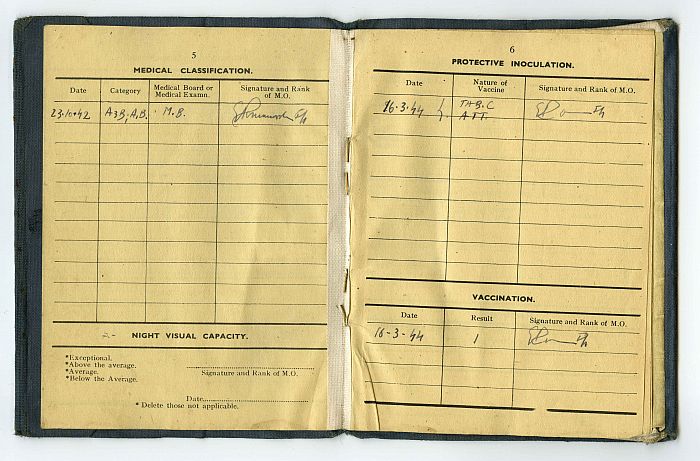 5
MEDICAL CLASSIFICATION.
Date Category Medical Board or Medical Examn. Signature and Rank of M.O.
23.10.42 A3B, A.B. M.B.
NIGHT VISUAL CAPACITY.
*Exceptional.
*Above the average.
*Average.
*Below the Average.
Signature and Rank of M.O.
Date
* Delete those not applicable.
6
PROTECTIVE INOCULATION.
Date Nature of Vaccine Signature and Rank of M.O.
16.3.44 TAB.C
ATT.
VACCINATION.
Date Result Signature and Rank of M.O.
16-3-44 1